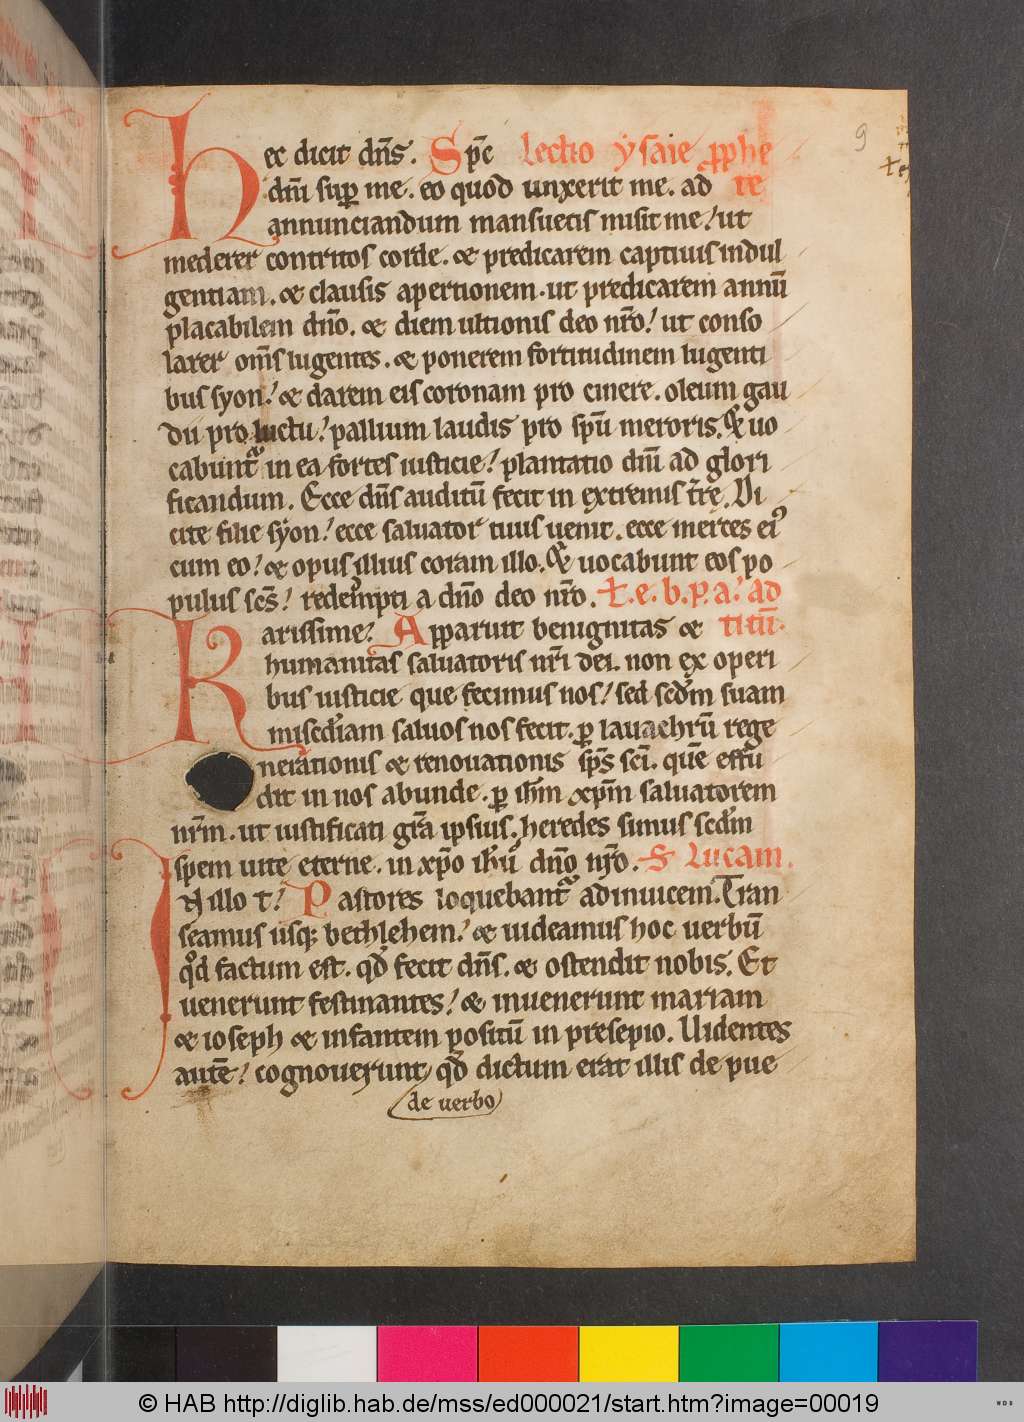 Hec dicit dn̄s. Spc̄ Lectio ysaie p̲phe
dnī sup̲ me. eo quod unxerit me. ad te
annunciandum mansuetis misit me! ut
mederer contritos corde. & predicarem captiuis indul
gentiam. & clausis apertionem. ut predicarem annū
placabilem dn̄o. & diem ultionis deo nr̄o! ut conso
larer om̄s lugentes. & ponerem fortitudinem lugenti
bus syon! & darem eis coronam pro cinere. oleum gau
dii pro luctu! pallium laudis pro spū meroris. & uo
cabunt᷑ in ea fortes iusticie! plantatio dnī ad glori
ficandum. Ecce dn̄s auditū fecit in extremis tr̄e. Di
cite filie syon! ecce saluator tuus uenit. ecce merces ei᷒
cum eo! & opus illius coram illo. & uocabunt eos po
pulus sc̄s! redempti a dn̄o deo nr̄o. t. e. b. p. a. ad
Karissime. Apparuit benignitas & titū.
humanitas saluatoris nr̄i dei. non ex operi
bus iusticie que fecimus nos! sed scd̄m suam
misc̄diam saluos nos fecit. p̲ lauachrū rege
nerationis & renouationis sp̄s scī. quē effu
dit in nos abunde. p̲ ih̄m xp̄m saluatorem
nr̄m. ut iustificati gr̄a ipsius. heredes simus scd̄m
spem uite eterne. in xp̄o ih̄u dn̄o nr̄o. S Lucam.
IN illo t! Pastores loquebant᷑ adinuicem. Tran
seamus usq; bethlehem! & uideamus hoc uerbū
qd̄ factum est. qd̄ fecit dn̄s. & ostendit nobis. Et
uenerunt festinantes! & inuenerunt mariam
& ioseph & infantem positū in presepio. Uidentes
autē! cognouerunt qd̄ dictum erat illis de pue
de uerbo
9
© HAB http://diglib.hab.de/mss/ed000021/start.htm?image=00019